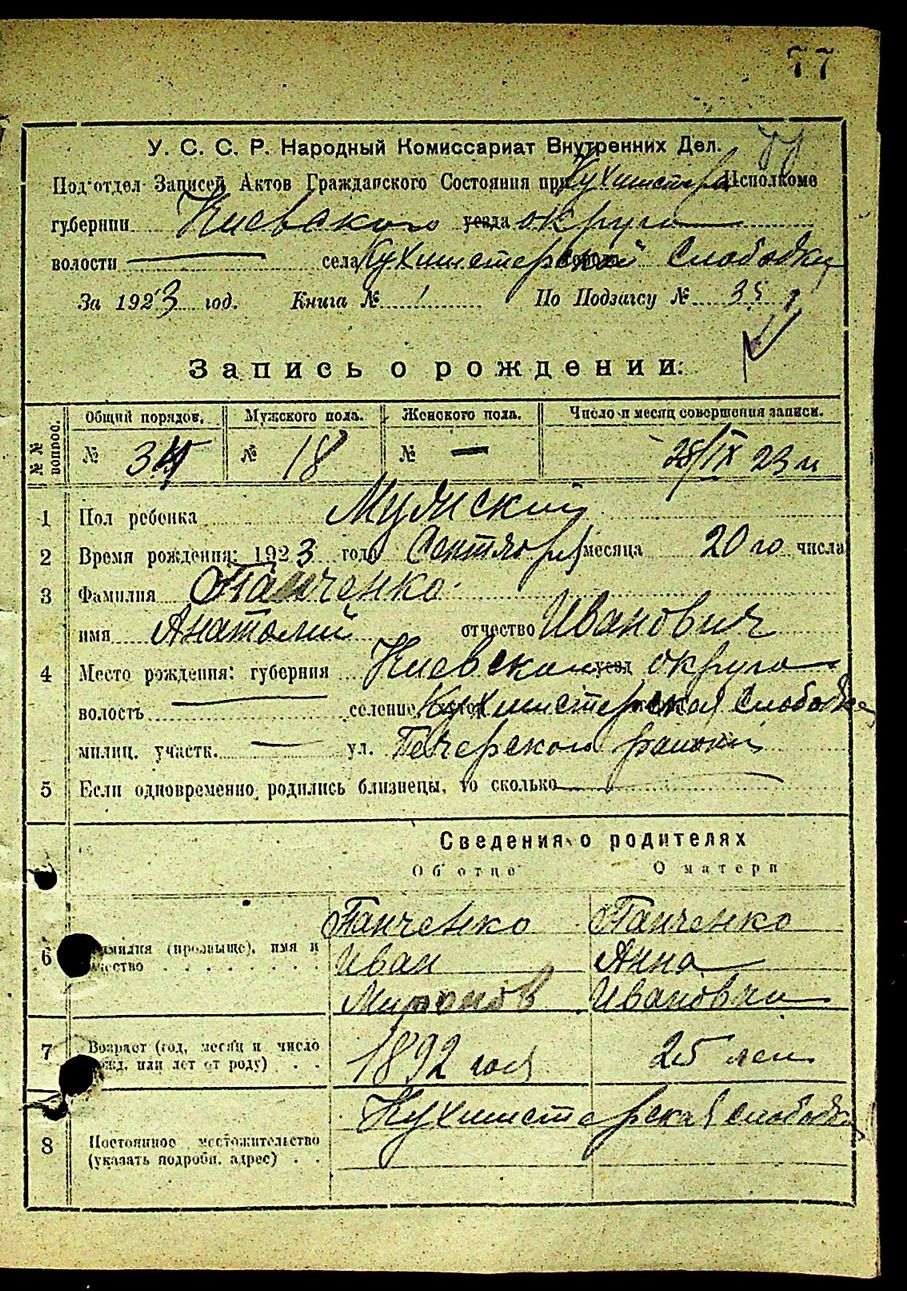 77
У. С. С. Р. Народный Комиссариат Внутренних Дел.
Под'отдел Записей Актов Гражданского Состояния при Кухмистер Исполкоме
губернии Киевского уезда округа
волости — села Кухмистерской Слободки
За 1923 год. Книга № 1 По Подзагсу № 35
Запись о рождении.
№№ вопрос. Общий порядов. Мужского пола. Женского пола. Число и месяц совершения записи.
№ 34 № 18 № — 28/IX 23 г
1 Пол ребенка Мужский
2 Время рождения: 1923 года Сентября месяца 20 го числа
3 Фамилия Панченко
имя Анатолий отчество Иванович
4 Место рождения: губерния Киевского уезд округа
волость — селение Кухмистерская Слободка
милиц. участк. — ул. Печерского района
5 Если одновременно родились близнецы, то сколько —
Сведения о родителях
Об отце О матери
6 Фамилия (прозвище), имя и отчество Панченко Панченко
Иван Анна
Миронов Ивановна
7 Возраст (год, месяц и число рожд. или лет от роду) 1892 года 25 лет
8 Постоянное местожительство (указать подробн. адрес) Кухмистерская слободка